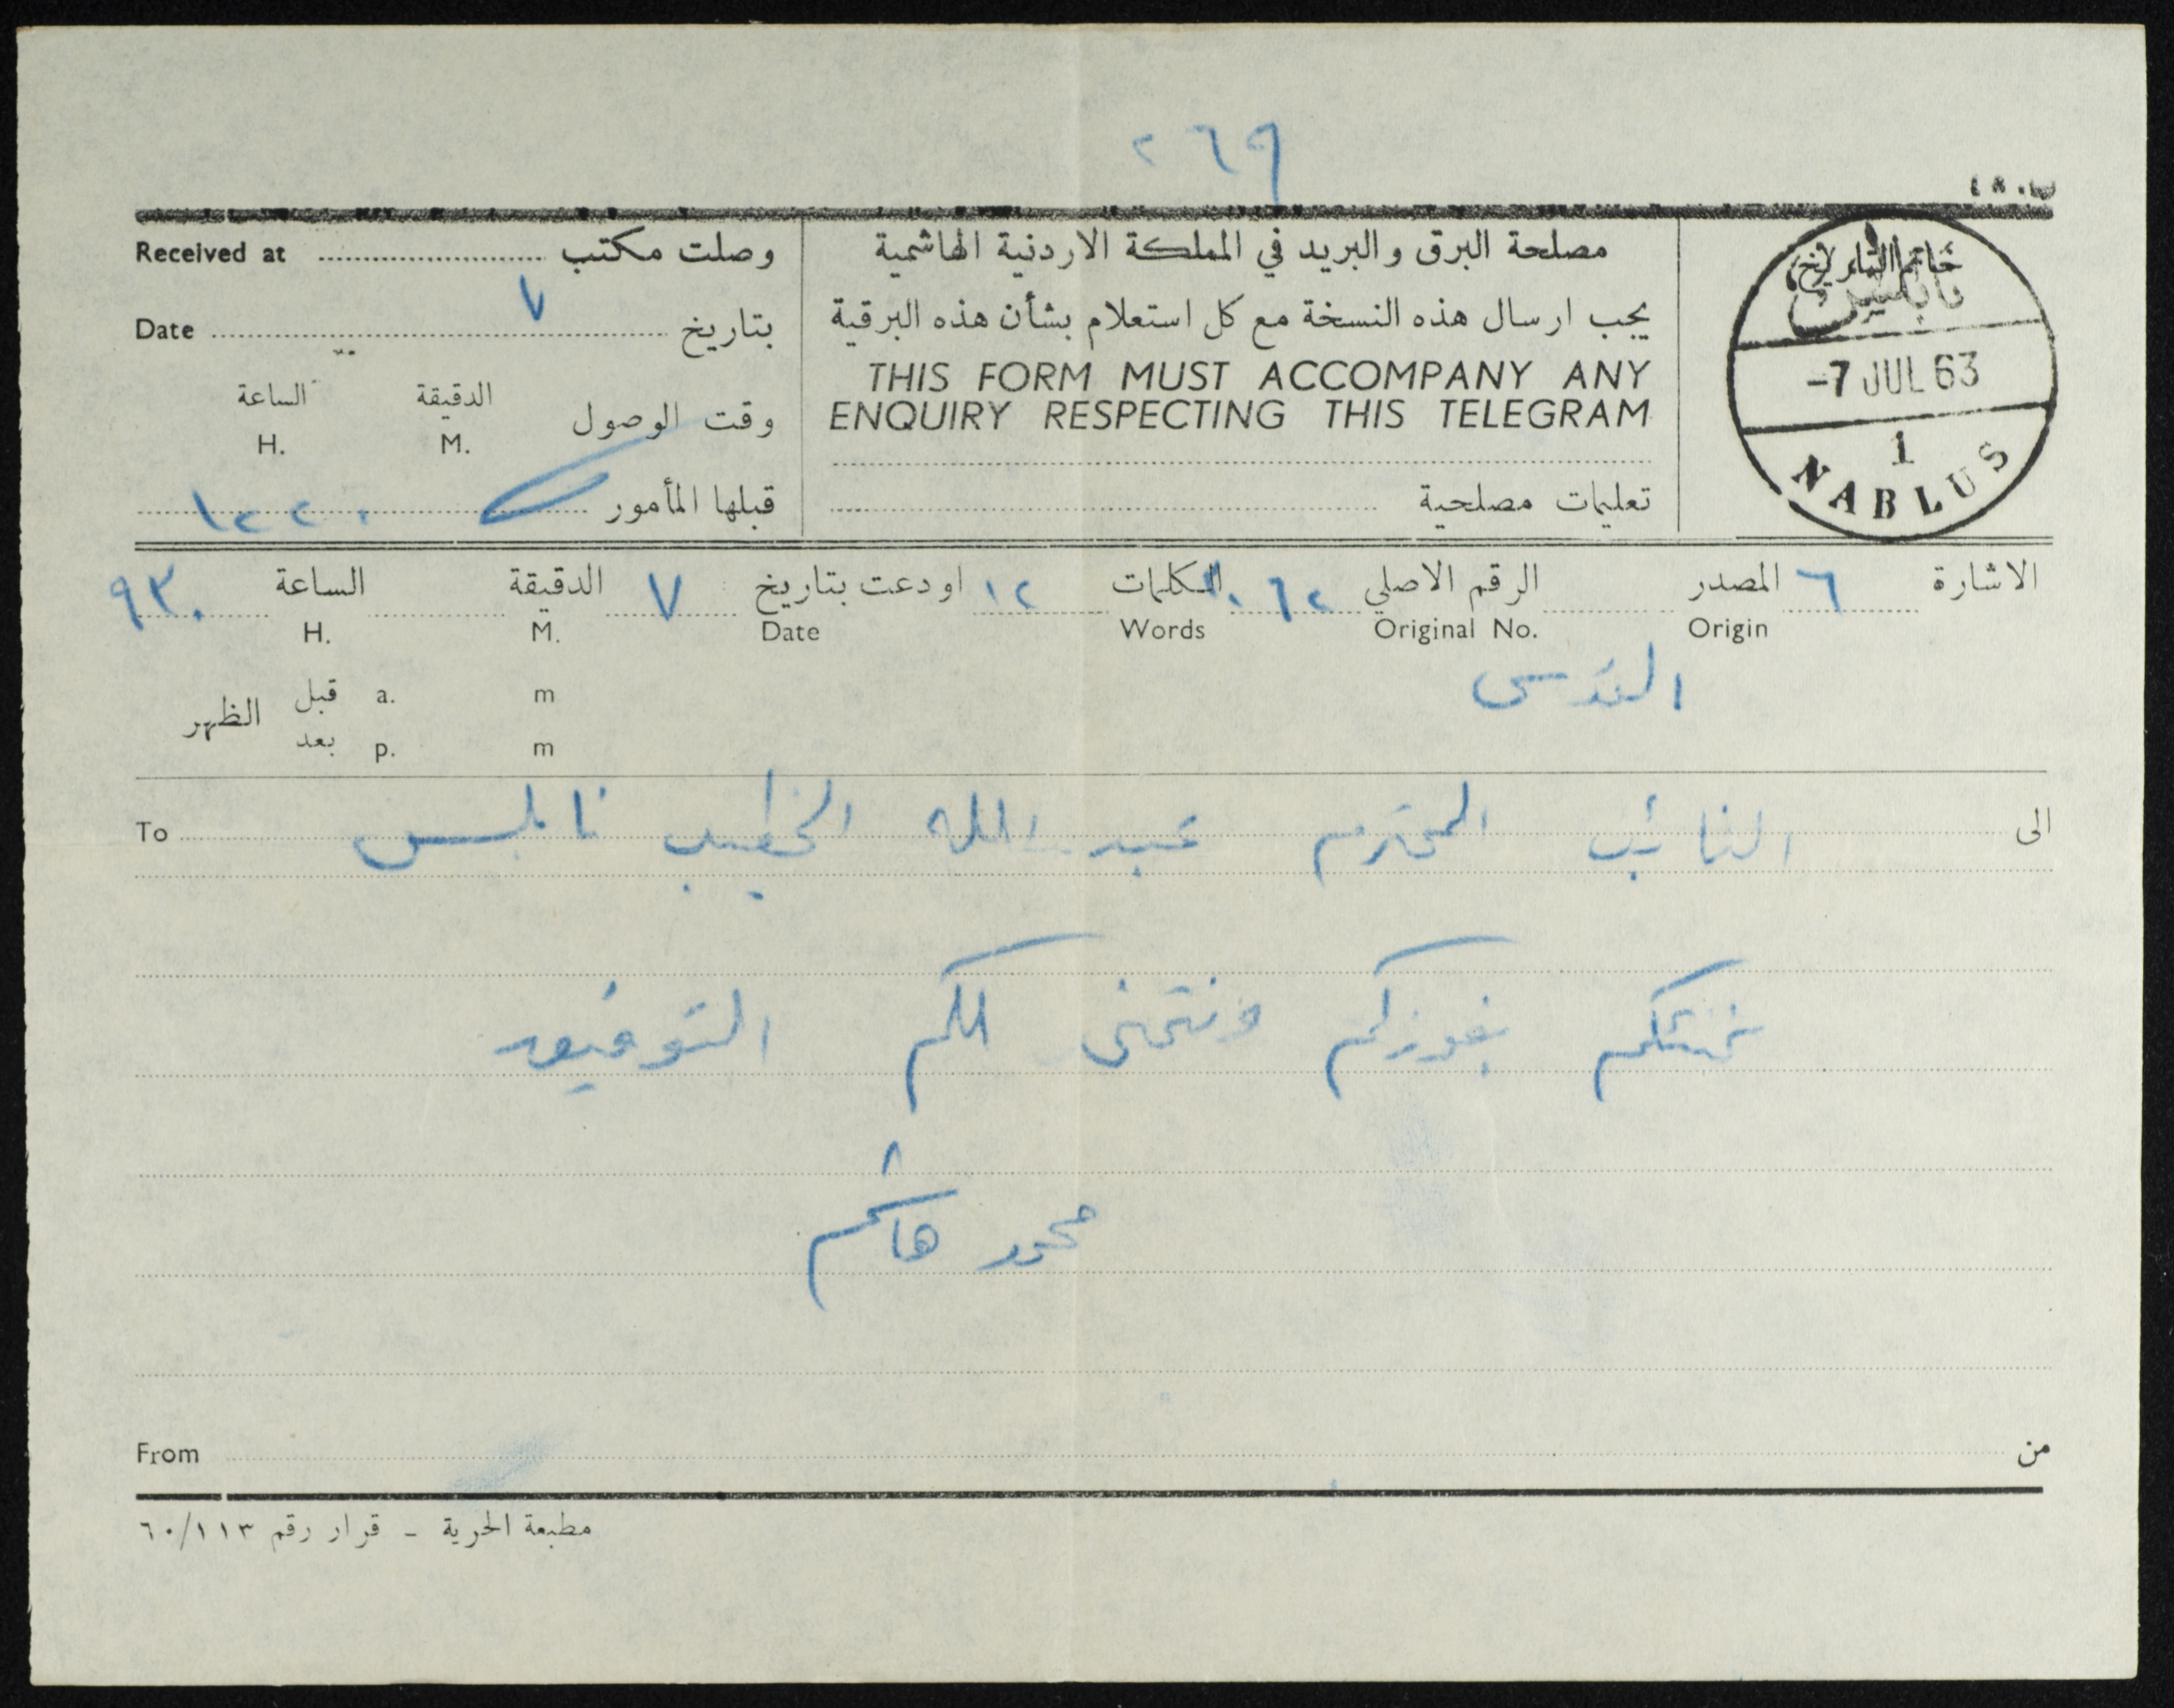 ٢٦٩
Received at وصلت مكتب
Date ٧ بتاريخ
الساعة الدقيقة وقت الوصول
H. M.
١٢٢٠ قبلها المأمور
مصلحة البرق والبريد في المملكة الاردنية الهاشمية
يجب ارسال هذه النسخة مع كل استعلام بشأن هذه البرقية
THIS FORM MUST ACCOMPANY ANY
ENQUIRY RESPECTING THIS TELEGRAM
تعليمات مصلحية
خاتم التاريخ
نابلس
-7 JUL 63
1
NABLUS
الاشارة ٦ المصدر الرقم الاصلي الكلمات ١٢ اودعت بتاريخ ٧ الدقيقة الساعة ٩٣٠
Origin Original No. Words Date M. H.
القدس
قبل a. m
الظهر
بعد p. m
الى النائب المحترم عبد الله الخطيب نابلس To
نهنئكم بفوزكم ونتمنى لكم التوفيق
محمد هاشم
From من
مطبعة الحرية - قرار رقم ٦٠/١١٣